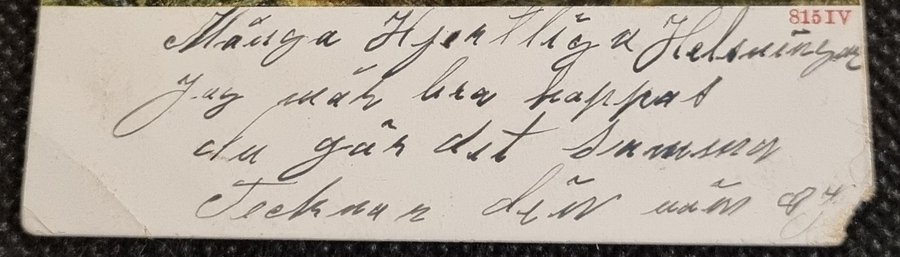 815 IV
Många Hjertliga Helsningar
Jag mår bra hoppas
du gör det samma
Tecknar din vän